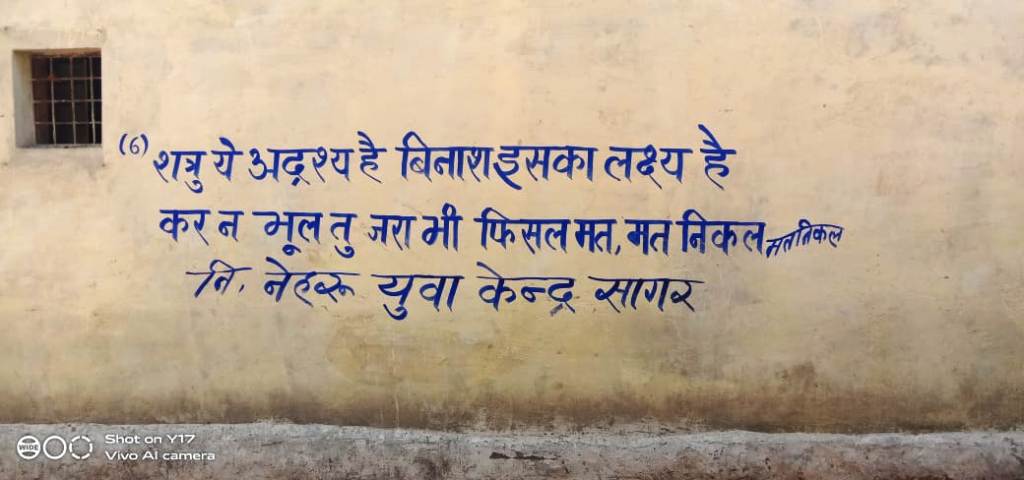 (6) शत्रु ये अद्रश्य है बिनाश इसका लक्ष्य है
कर न भूल तु जरा भी फिसल मत, मत निकल मत निकल
नि. नेहरू युवा केन्द्र सागर
Shot on Y17
Vivo AI camera